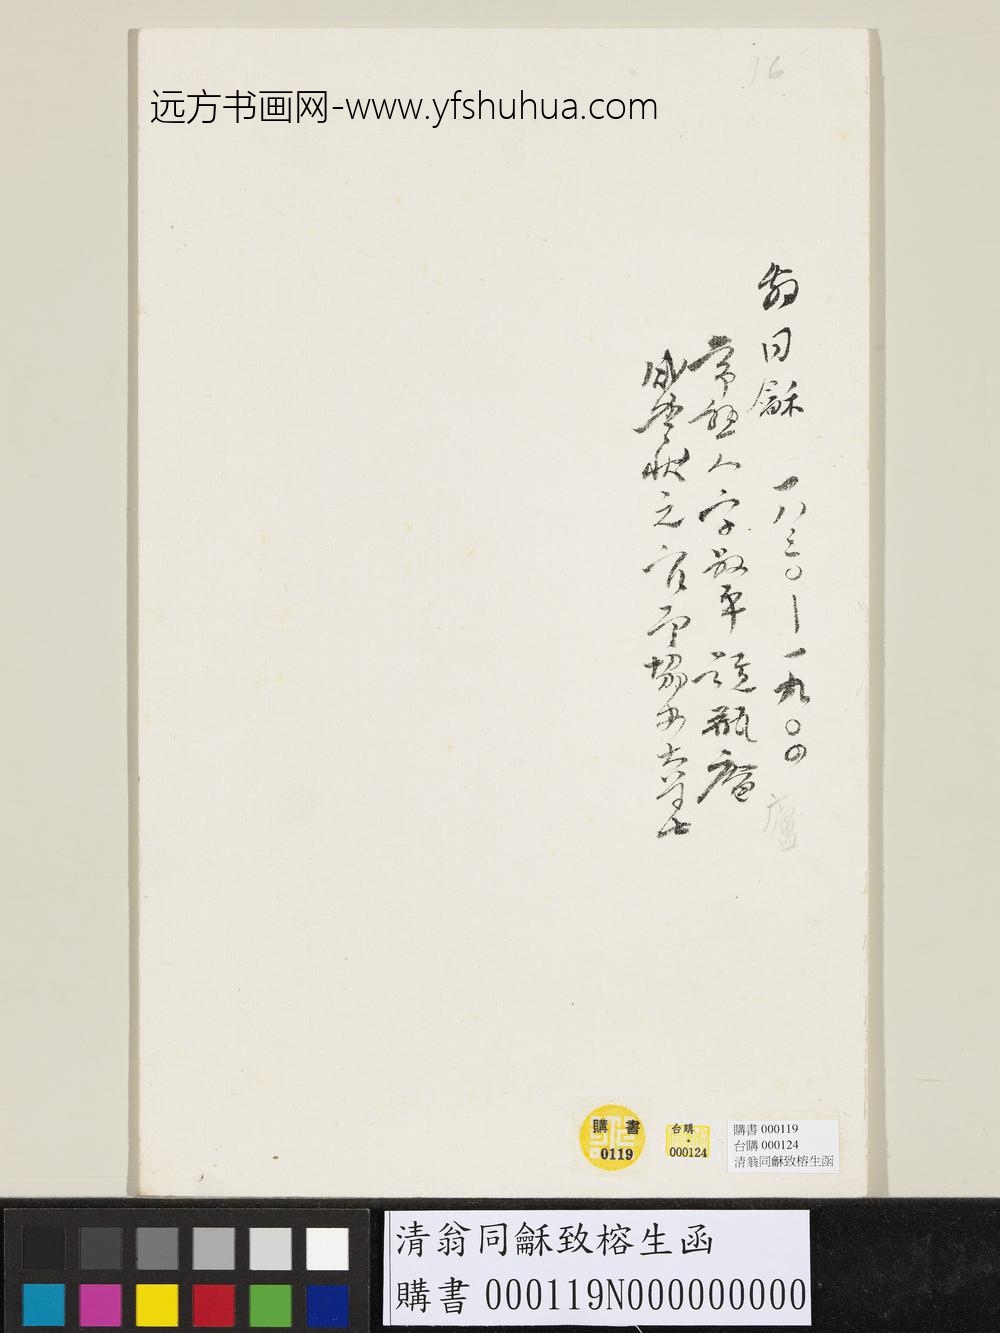 16
远方书画网-www.yfshuhua.com
翁同龢 一八三〇—一九〇四
常熟人字叔平號瓶庵
廬
咸豐狀元官至協办大学士
購書
0119
台購
000124
購書 000119
台購 000124
清翁同龢致榕生函
清翁同龢致榕生函
購書 000119N000000000